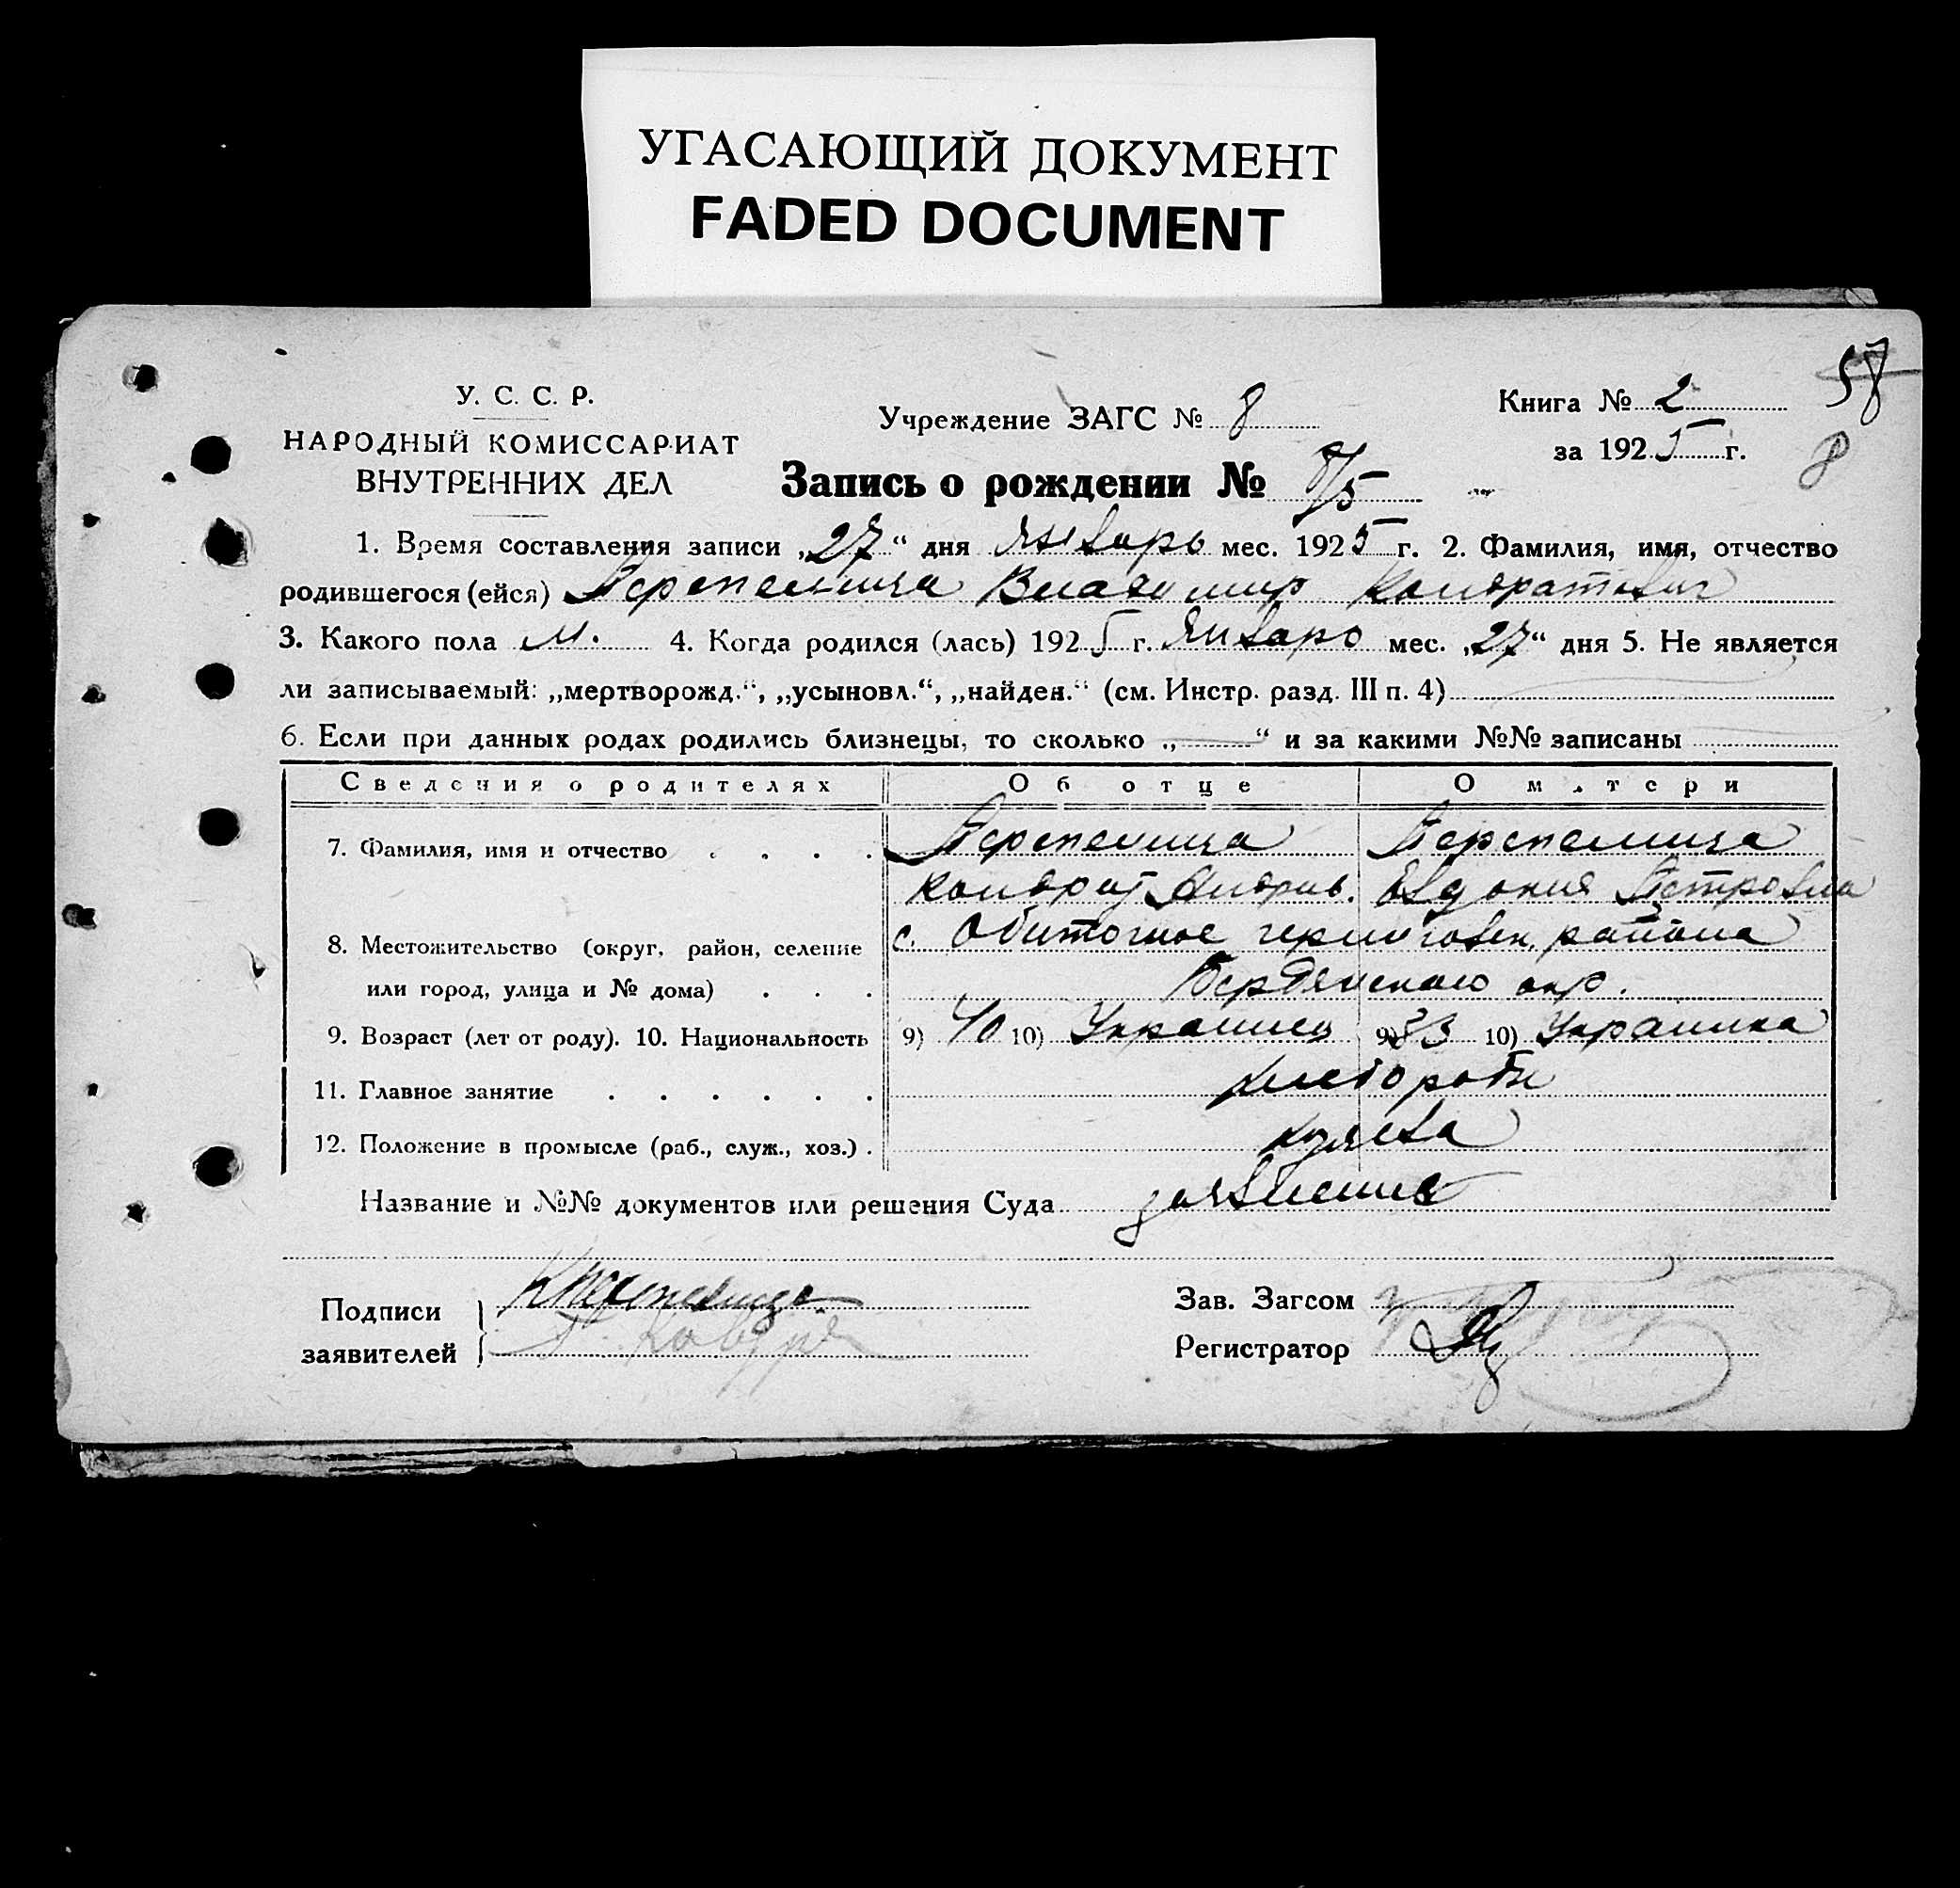 УГАСАЮЩИЙ ДОКУМЕНТ
FADED DOCUMENT
58
8
У. С. С. Р.
НАРОДНЫЙ КОМИССАРИАТ
ВНУТРЕННИХ ДЕЛ
Учреждение ЗАГС № 8
Книга № 2
за 1925 г.
Запись о рождении № 8/5
1. Время составления записи „27“ дня Январь мес. 1925 г. 2. Фамилия, имя, отчество
родившегося (ейся) Перепелица Владимир Кондратович
3. Какого пола м. 4. Когда родился (лась) 1925 г. Январь мес. „27“ дня 5. Не является
ли записываемый: „мертворожд.“, „усыновл.“, „найден.“ (см. Инстр. разд. III п. 4)
6. Если при данных родах родились близнецы, то сколько „—“ и за какими №№ записаны
Сведения о родителях Об отце О матери
7. Фамилия, имя и отчество . . . . Перепелица Перепелица
Кондрат Андрив. Евдокия Петровна
8. Местожительство (округ, район, селение с. Обиточное черниговск. района
или город, улица и № дома) . . . Бердянского окр.
9. Возраст (лет от роду). 10. Национальность 9) 40 10) Украинец 9) 33 10) Украинка
11. Главное занятие . . . . . . хлебороб
12. Положение в промысле (раб., служ., хоз.) . хозяева
Название и №№ документов или решения Суда заявление
Подписи
заявителей
КПерепелица
Зав. Загсом
Регистратор